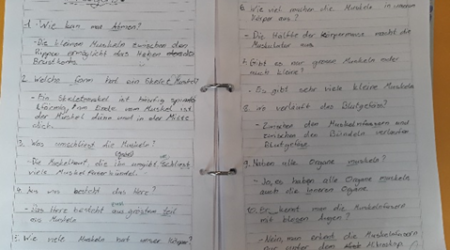 1. Wie kan man Atmen?
- Die kleinen Muskeln zwischen den
Rippen ermöglicht das Heben
Brustkorb
2. Welche form hat ein Skelet Muskel?
- Ein Skeletmuskel ist häufig
am Ende vom Muskel ist
der Muskel dünn und in der Mitte
dick.
3. Was umschliegt die Muskeln?
- Die Muskelhaut, die ihn umgibt
viele Muskelfaserbündel.
4. Aus was besteht das Herz?
- Das Herz besteht aus größten teil
aus Muskeln
5. Wie viele Muskeln hat unser Körper?
6. Wie viel machen die Muskeln in unseren
Körper aus?
- Die Hälfte der Körpermasse macht die
Muskulatur aus
7. Gibt es nur große Muskeln oder
auch kleine?
- Du gibt sehr viele kleine Muskeln
8. wo verläuft das Blutgefäss?
- Zwischen den Muskelnfasern und
zwischen den Bündeln verlaufen
Blutgefässe
9. Haben alle Organe muskeln?
- Ja, es haben alle Organe muskeln
auch die inneren Organe.
10. kennt man die Muskelnfasern
mit bloßen Augen?
- Nein, man erkennt die Muskelnfasern
nur unter dem Mikroskop